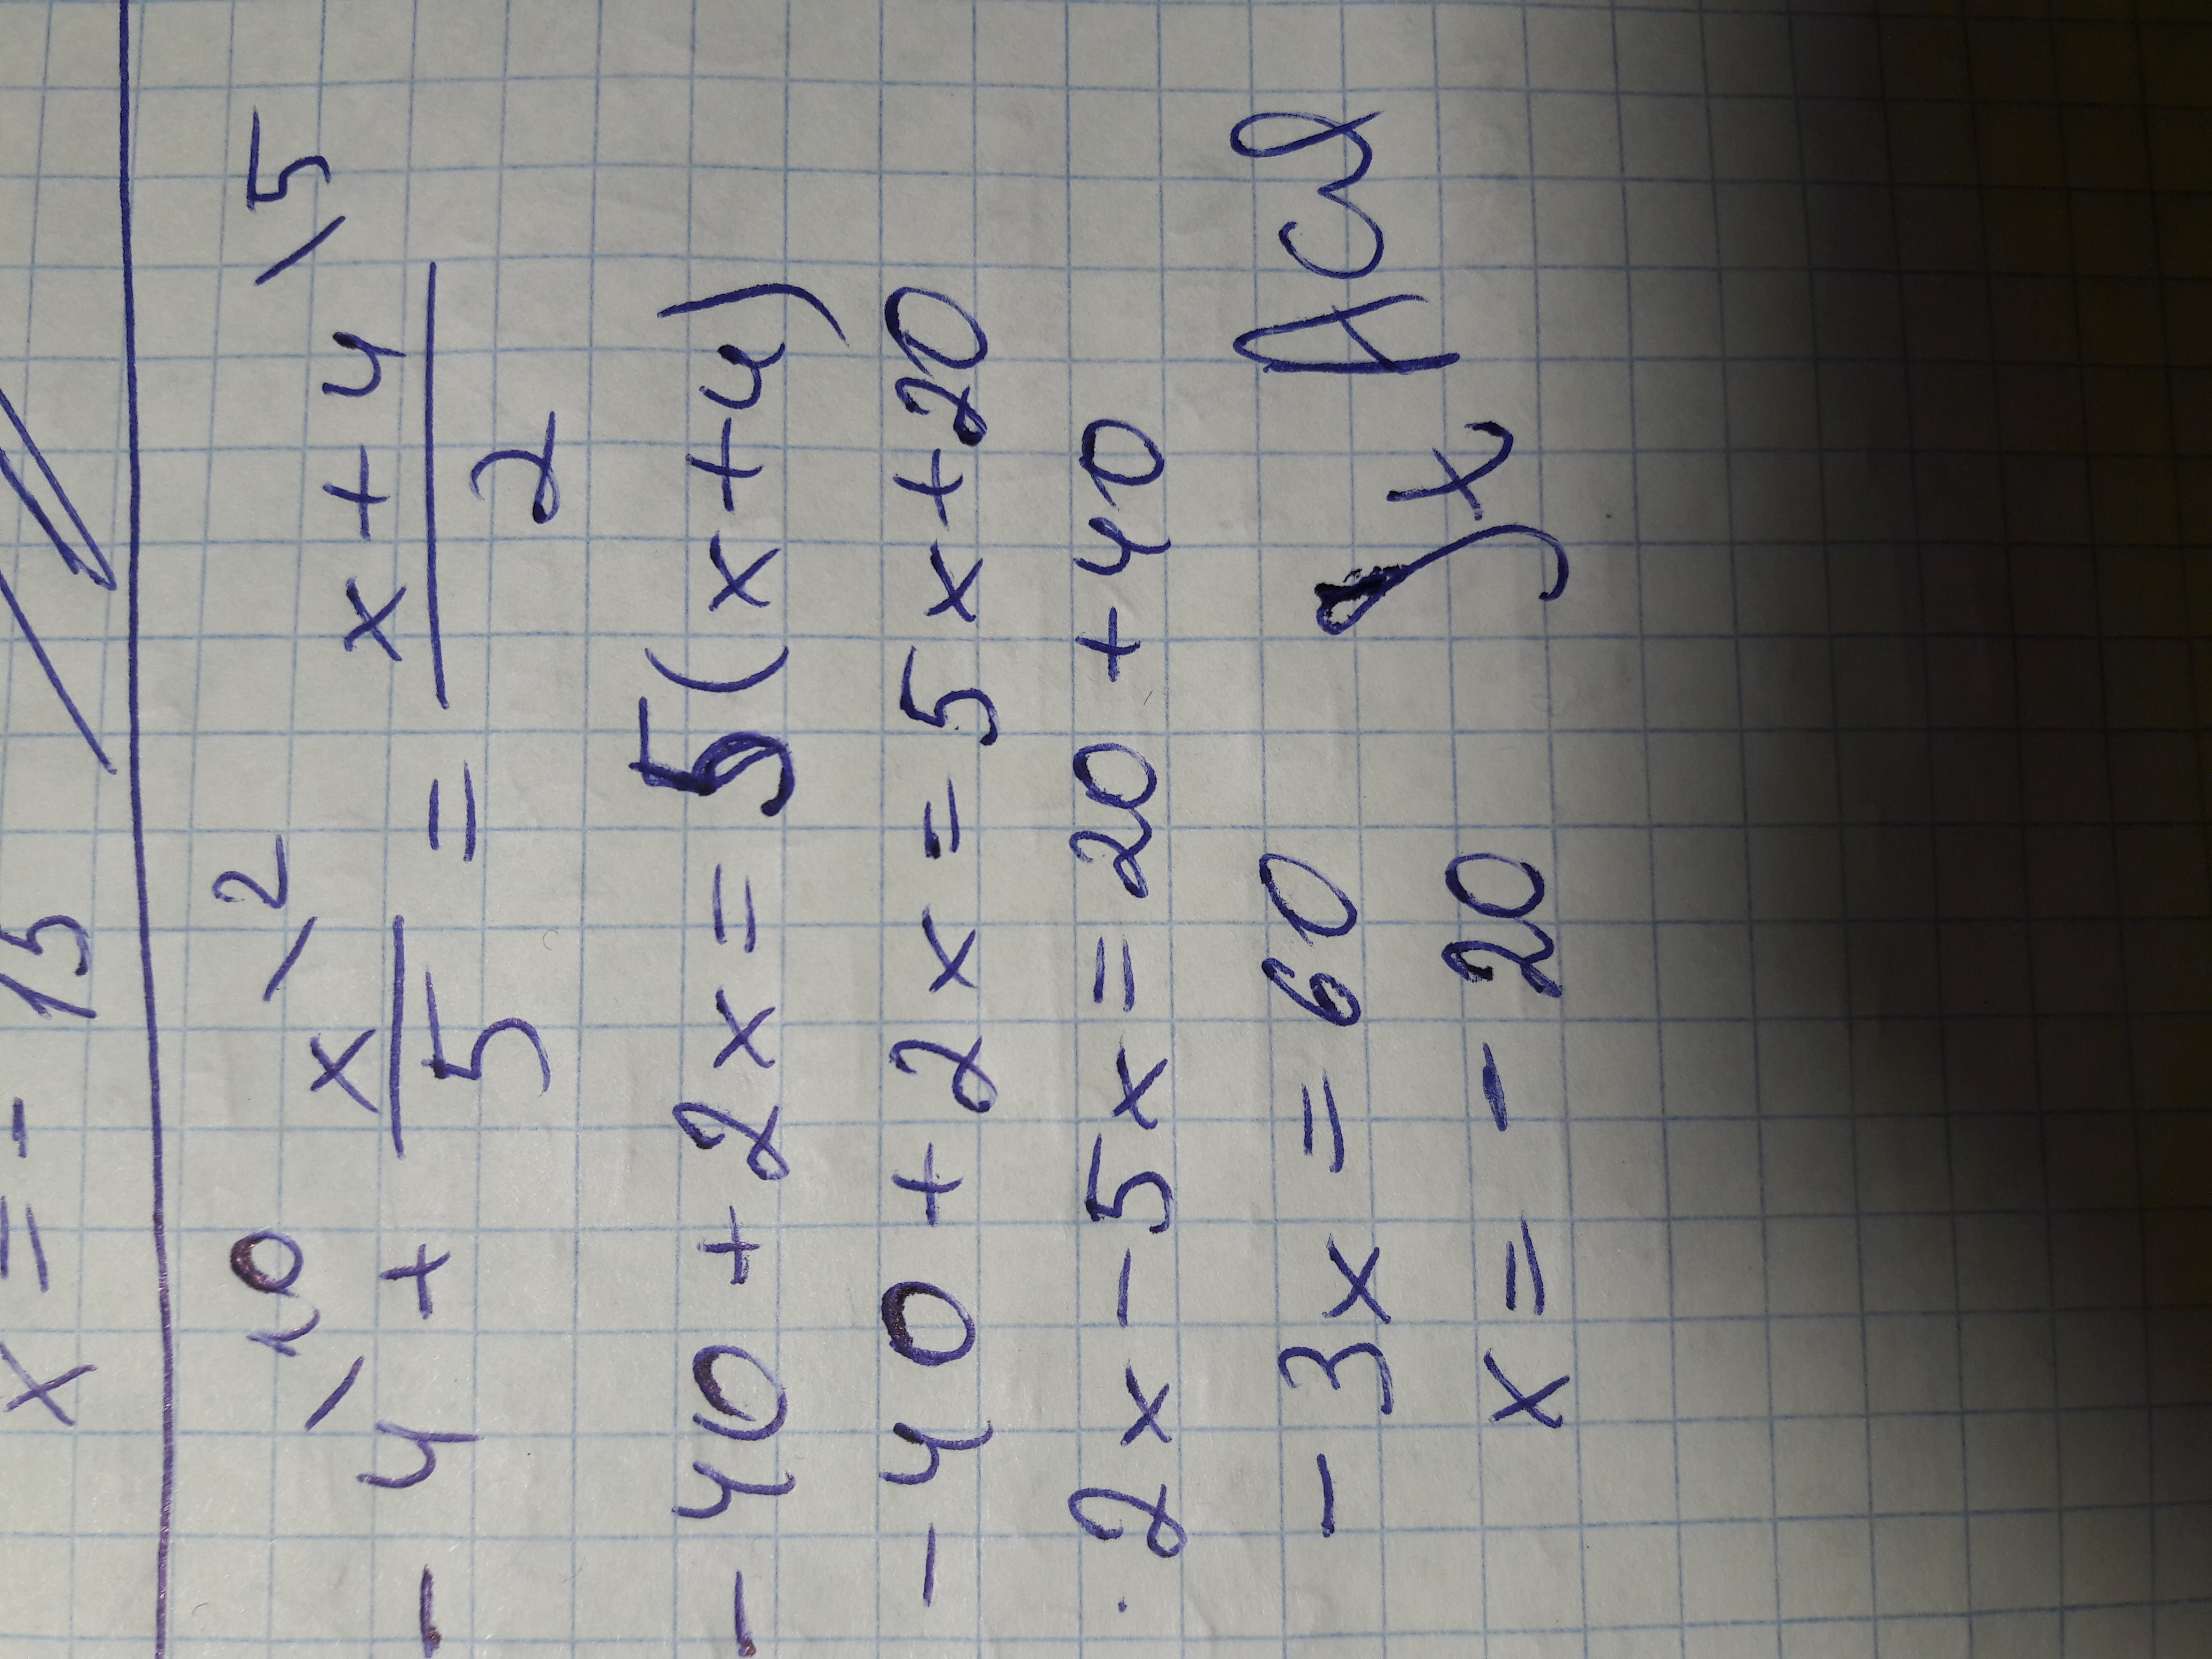 x = - 15
- 4\10 + x/5\2 = (x+4)/2\5
- 40 + 2x = 5(x+4)
- 40 + 2x = 5x+20
2x - 5x = 20 + 40
- 3x = 60
x = - 20